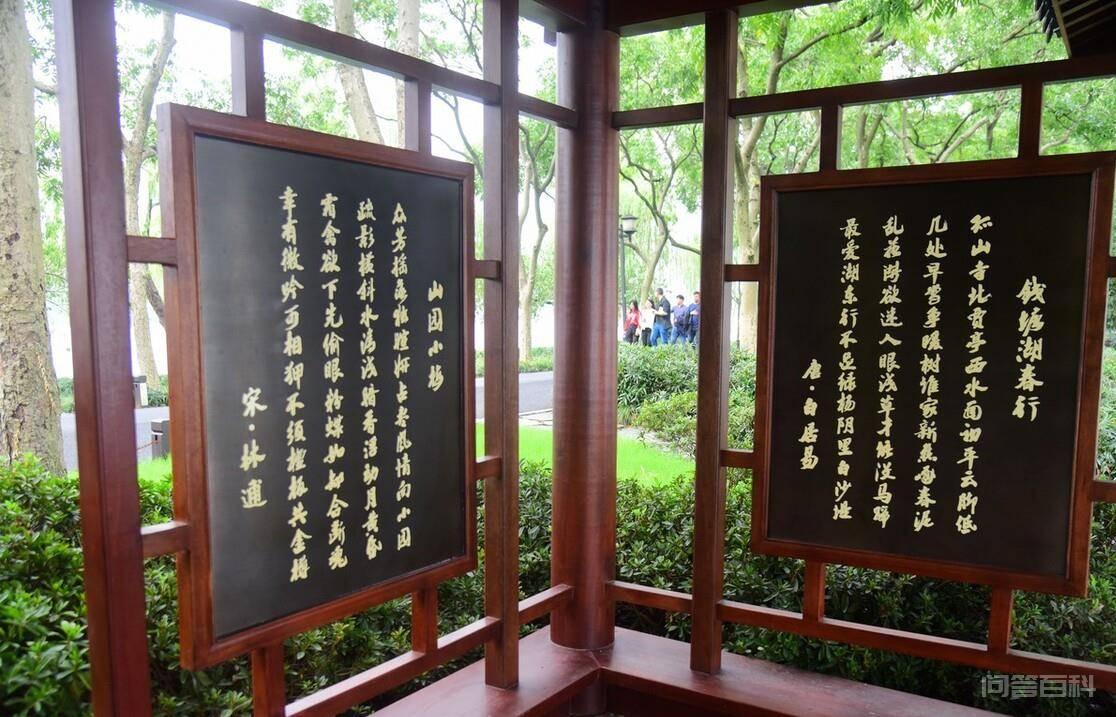 山园小梅
众芳摇落独暄妍占尽风情向小园
疏影横斜水清浅暗香浮动月黄昏
霜禽欲下先偷眼粉蝶如知合断魂
幸有微吟可相狎不须檀板共金樽
宋·林逋
钱塘湖春行
孤山寺北贾亭西水面初平云脚低
几处早莺争暖树谁家新燕啄春泥
乱花渐欲迷人眼浅草才能没马蹄
最爱湖东行不足绿杨阴里白沙堤
唐·白居易
问答百科